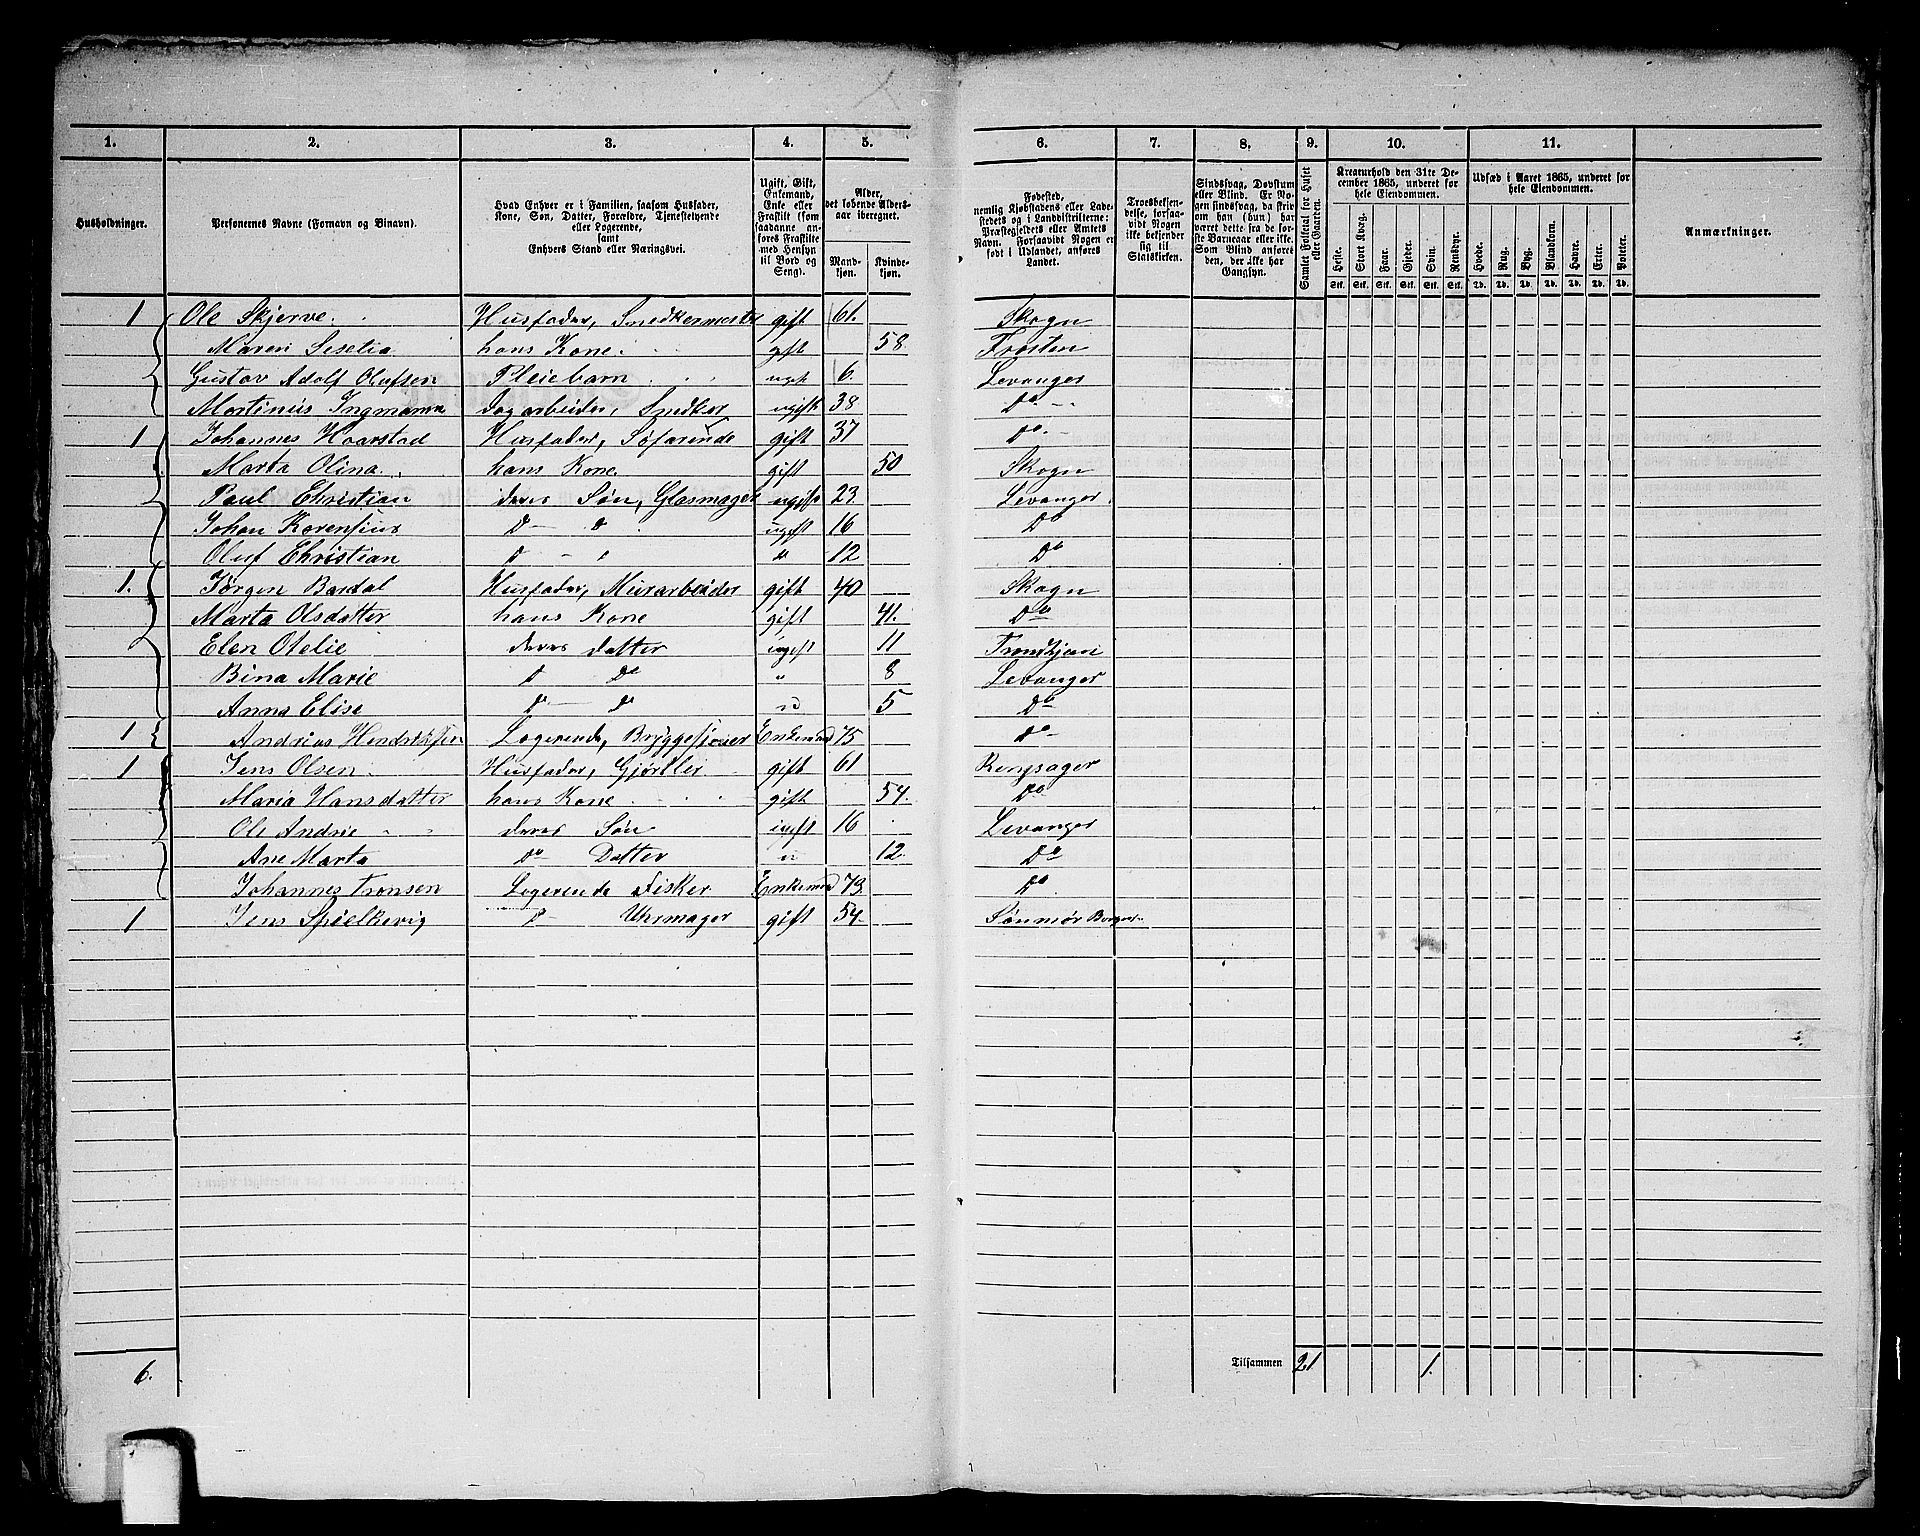 1. 2. 3. 4. 5. 6. 7. 8. 9. 10. 11.
Husholdninger.
Personernes Navne (Fornavn og Binavn).
Hvad Enhver er i Familien, saasom Husfader,
Kone, Søn, Datter, Forældre, Tjenestetyende
eller Logerende,
samt
Enhvers Stand eller Næringsvei.
Ugift, Gift,
Enkemand,
Enke eller
Fraskilt (som
saadanne an-
føres Fraskilte
med Hensyn
til Bord og
Seng).
Alder,
det løbende Alders-
aar iberegnet.
Mand-
kjøn.
Kvinde-
kjøn.
Fødested,
nemlig Kjøbstadens eller Lade-
stedets og i Landdistrikterne:
Præstegjeldets eller Amtets
Navn. Forsaavidt Nogen er
født i Udlandet, anføres
Landet.
Troesbekjen-
delse, forsaa-
vidt Nogen
ikke bekjender
sig til
Statskirken.
Sindssvag, Døvstum
eller Blind. Er No-
gen sindssvag, da skriv
om han (hun) har
været dette fra de før-
ste Barneaar eller ikke.
Som Blind anføres
den, der ikke har
Gangsyn.
Samlet Folketal for Huset
eller Gaarden.
Kreaturhold den 31te De-
cember 1865, underet for
hele Eiendommen.
Heste. Stort Kvæg. Faar. Gjeder. Svin. Rensdyr.
Stk. Stk. Stk. Stk. Stk. Stk.
Udsæd i Aaret 1865, underet for
hele Eiendommen.
Hvede. Rug. Byg. Blandkorn. Havre. Erter. Poteter.
Td. Td. Td. Td. Td. Td. Td.
Anmærkninger.
1 Ole Skjerve. Husfader, Snedkermester gift 61. Skogn
Maren Sesetia hans Kone. gift 58. Frosten
Gustav Adolf Olufsen Pleiebarn ugift 6. Levanger
Martinus Ingmann dagarbeider, Snedker ugift 38 Do
1 Johannes Haarstad Husfader, Søfarende gift 37 Do
Marta Olina. hans Kone. gift 50 Skogn
Paul Christian deres Søn, Glasmager ugift 23. Levanger.
Johan Lorensius D D ugift 16 Do
Oluf Christian D " " 12 Do
1. Jørgen Bardal Husfader, Murarbeider gift 40 Skogn
Marta Olsdatter hans Kone gift 41. Do
Elen Otelie deres datter ugift 11 Trondhjem
Bina Marie D Do " 8 Levanger
Anna Elise D D " 5 Do
1 Andrias Hendriksen Logerende, Bryggesjouer Enkemand 75 Do
1 Jens Olsen. Husfader, Gjørtler gift 61 Ringsager
Maria Hansdatter hans Kone gift 54. Do
Ole Andrie deres Søn ugift 16 Levanger
Ane Marta Do Datter " 12. Do
Johannes Tronsen Logerende Fisker Enkemand 73. Do
1 Jens Spielkevig D Uhrmager gift 54. Søndmør Bergens
6. Tilsammen 21 1.